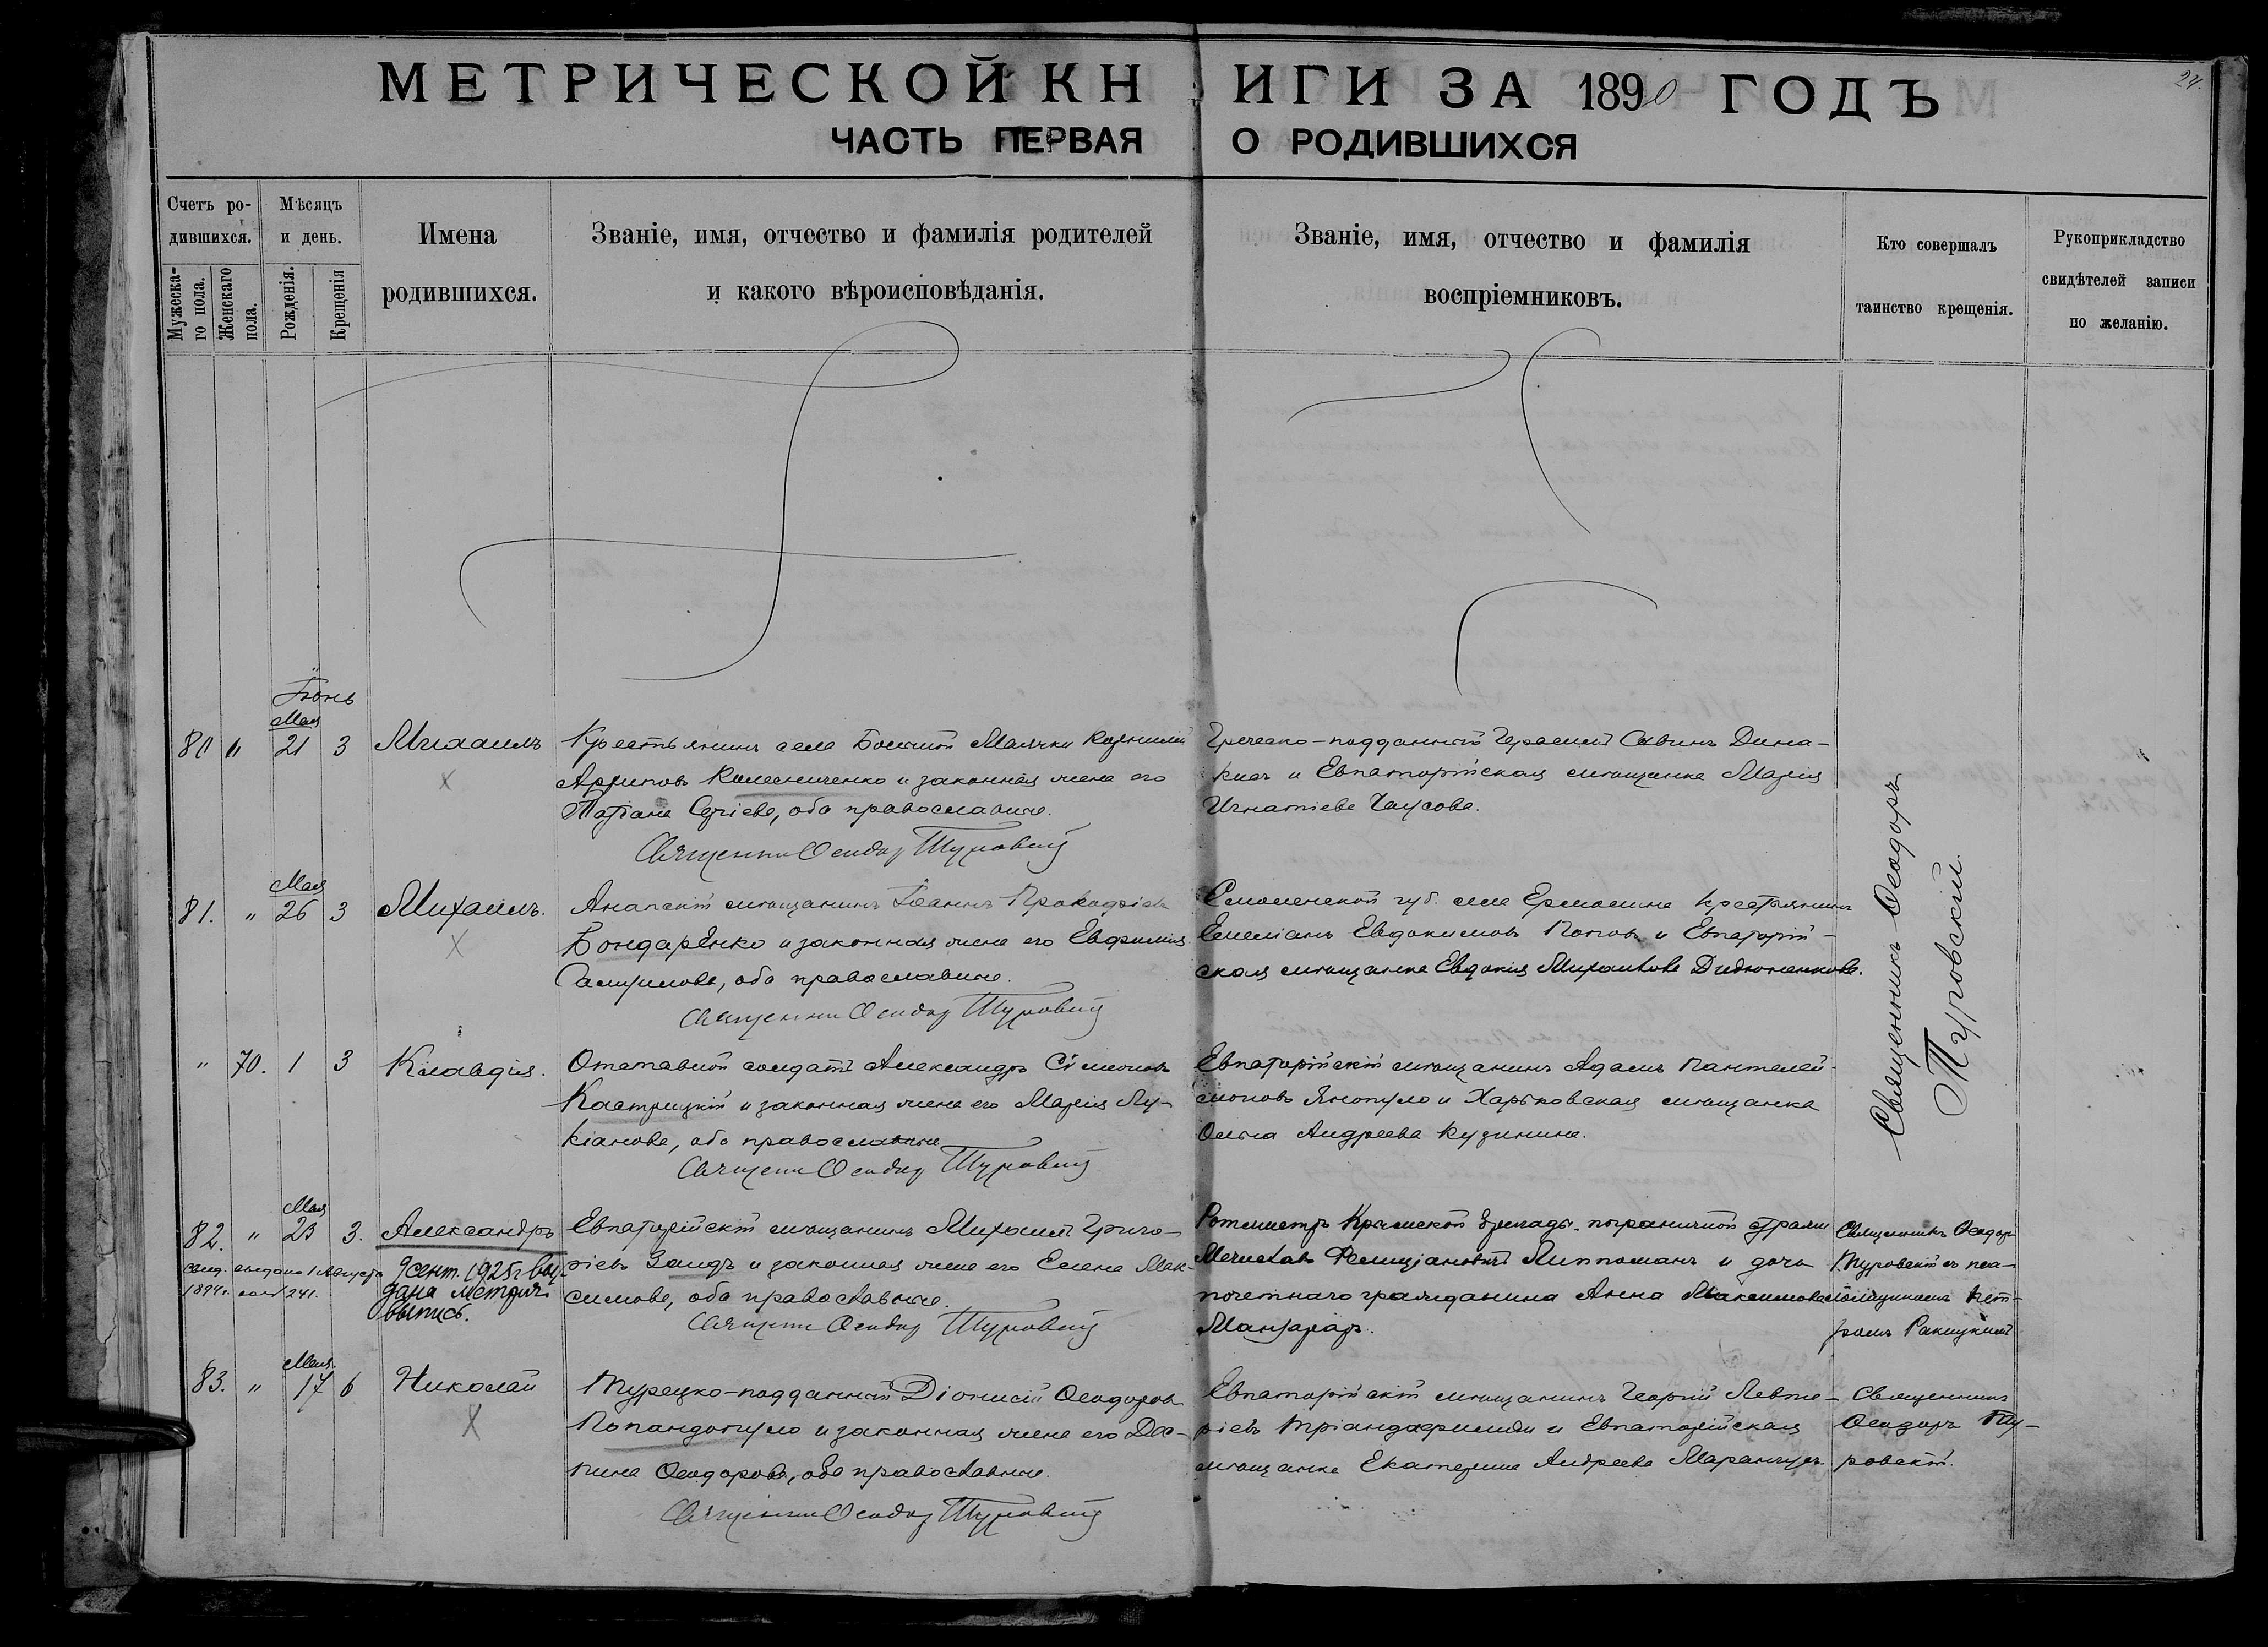 24.
МЕТРИЧЕСКОЙ КНИГИ ЗА 1890 ГОДЪ
ЧАСТЬ ПЕРВАЯ О РОДИВШИХСЯ
Счетъ родившихся.
Мужескаго пола.
Женскаго пола.
Мѣсяцъ и день.
Рожденія.
Крещенія
Имена
родившихся.
Званіе, имя, отчество и фамилія родителей
и какого вѣроисповѣданія.
Званіе, имя, отчество и фамилія
воспріемниковъ.
Кто совершалъ
таинство крещенія.
Рукоприкладство
свидѣтелей записи
по желанію.
Іюнь
Мая
80 " 21 3 Михаилъ
Крестьянинъ села Большой Маячки
Архиповъ и законная жена его
Татіана Сергіева, оба православные.
Священникъ Ѳеодоръ Туровскій
Греческо-подданный Герасимъ Савинъ Дина-
и Евпаторійская мѣщанка Марія
Игнатіева Чаусова.
Мая
81. " 26 3 Михаилъ.
Анапскій мѣщанинъ Іоаннъ Прокофіевъ
Бондаренко и законная жена его Евфимія
оба православные.
Священникъ Ѳеодоръ Туровскій
Смоленской губ. села Ермолина крестьянинъ
Емеліанъ Евдокимовъ Поповъ и Евпаторій-
ская мѣщанка Евдокія Михайлова
Священникъ Ѳеодоръ
Туровскій.
" 70. 1 3 Клавдія.
Отставной солдатъ Александръ Сѵмеоновъ
Кастрицкій и законная жена его Марія Лу-
кіанова, оба православные
Священникъ Ѳеодоръ Туровскій
Евпаторійскій мѣщанинъ Адамъ Пантелей-
моновъ Янопуло и Харьковская мѣщанка
Ольга Андреева Кузинина.
Мая
82. " 23 3. Александръ
Свид. выдано 1 Августа
1894г. за № 241.
9 сент. 1925г. вы-
дана метрич.
выпись.
Евпаторійскій мѣщанинъ Михаилъ Григо-
ріевъ Заидъ и законная жена его Елена Мак-
симова, оба православные.
Священникъ Ѳеодоръ Туровскій
Ротмистръ Крымской бригады пограничной стражи
Мечиславъ Фелиціановичъ Липпоманъ и дочь
почетнаго гражданина Анна Максимова
Священникъ Ѳеодоръ
Туровскій съ пса-
ломщикомъ Пет-
ромъ Ракицкимъ
Мая
83. " 17 6 Николай
Турецко-подданный Діонисій Ѳеодоровъ
Попандопуло и законная жена его Дес-
пина Ѳеодорова, оба православные.
Священникъ Ѳеодоръ Туровскій
Евпаторійскій мѣщанинъ Георгій Левте-
ріевъ Тріандафилиди и Евпаторійская
мѣщанка Екатерина Андреева
Священникъ
Ѳеодоръ Ту-
ровскій.